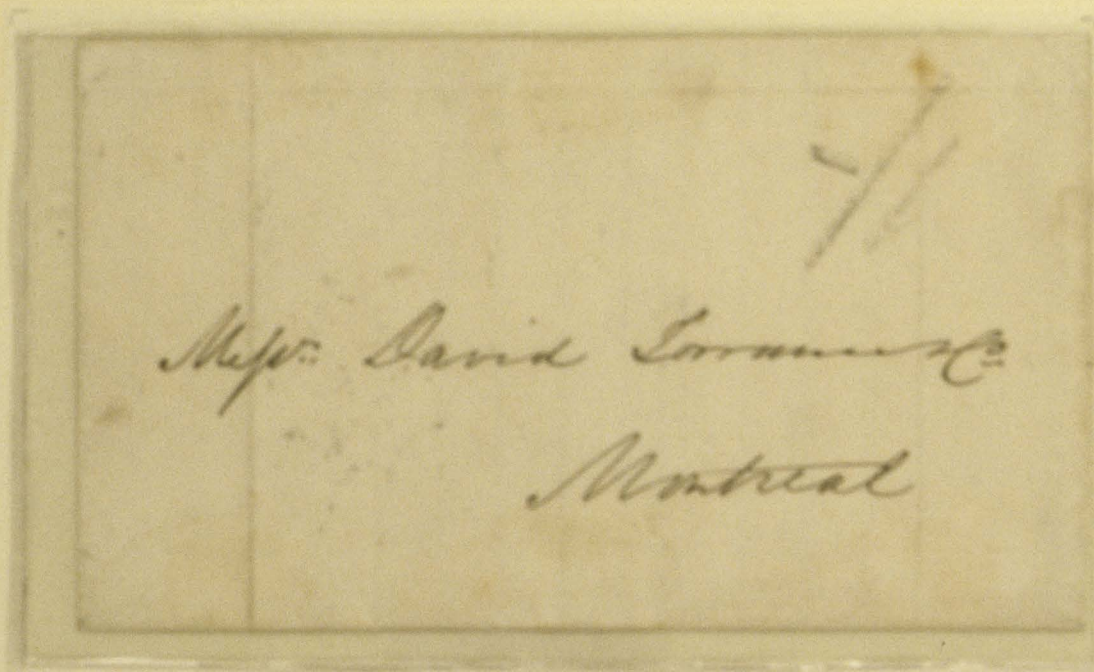 Messrs David Torrance & Co
Montreal